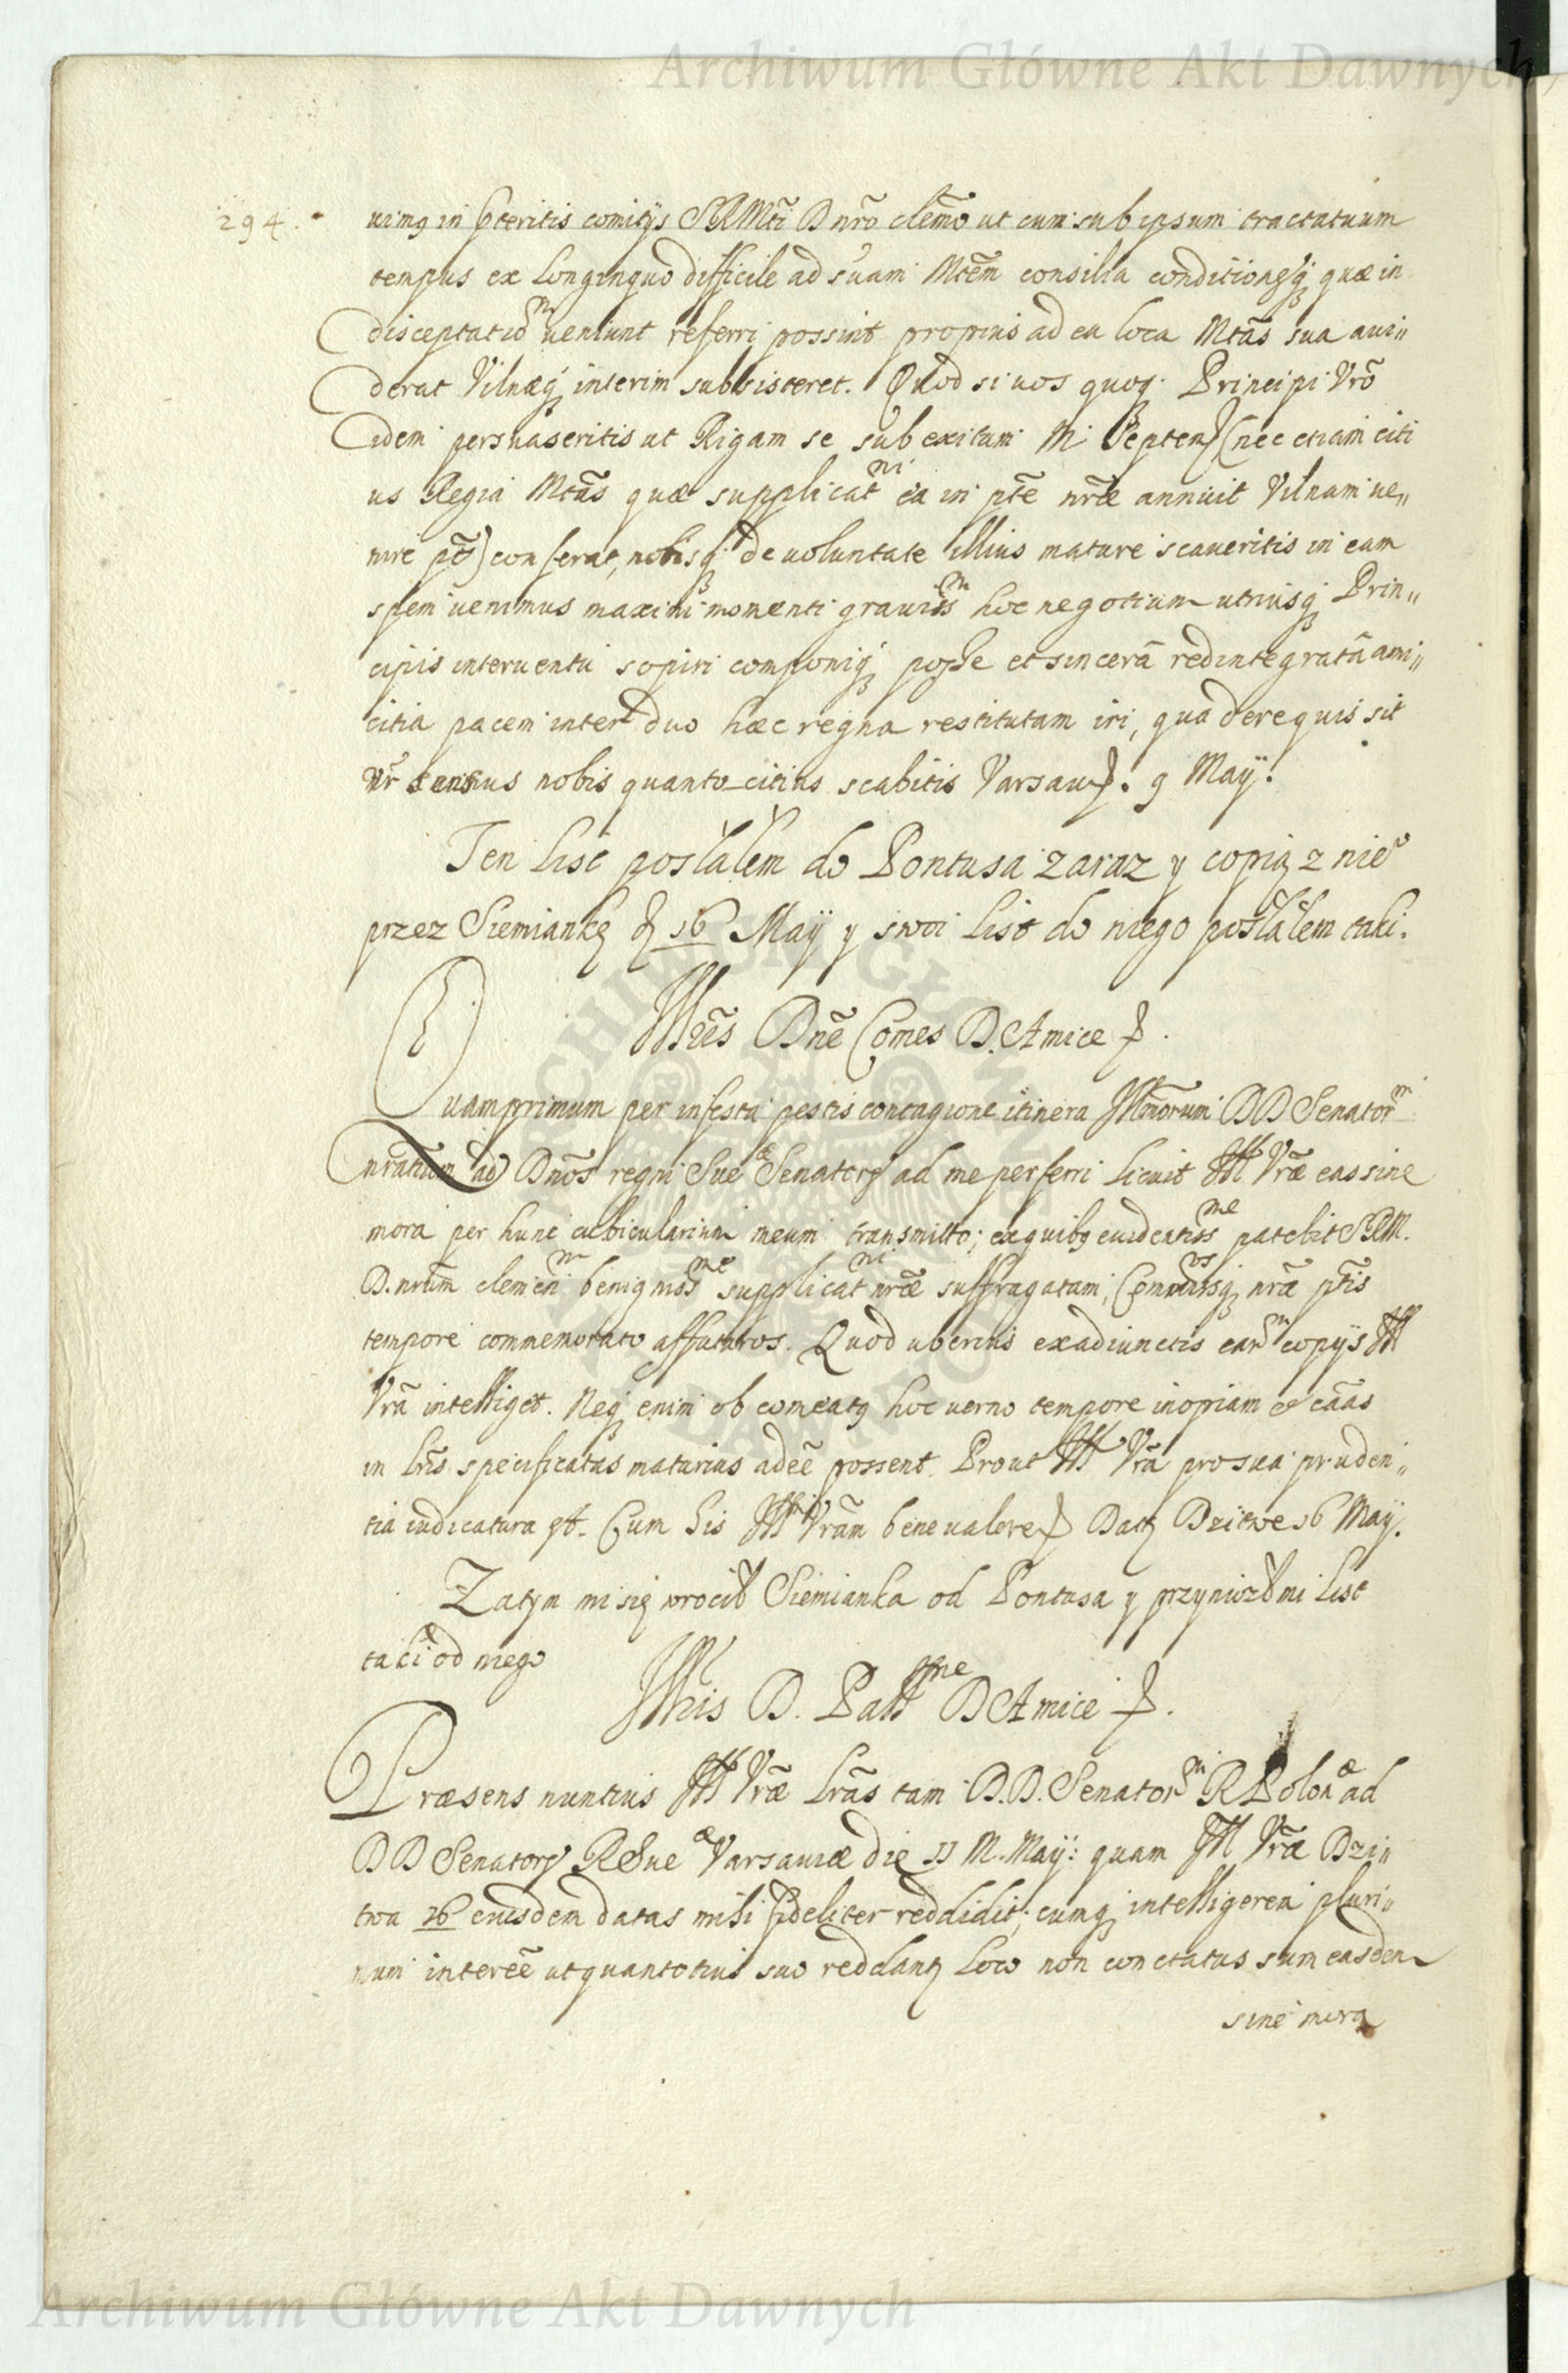 Archiwum Główne Akt Dawnych,
294.
uimg in pteritis comitijs SRMti D nro clemo ut cum sub ipsum tractatuum
tempus ex longinquo difficile ad suam Mtem consilia conditionesq quae in
disceptatiom ueniunt referri possint propius ad ea loca Mtas sua aui„
derat Vilnaeq interim subsisteret. Quod si uos quoq Principi Vro
idem persuaseritis ut Rigam se sub exitum M Septem (nec etiam citi
us Regia Mtas quae supplicatni ea in pte nrae annuit Vilnam ue„
nire pt) conferat, nobisq de uoluntate illius mature scaueritis in eam
spem uenimus maximi momenti grauissm hoc negotium utriusq Prin„
cipis interuentu sopiri componiq posse et sincerã redintegratã ami„
citia pacem inter duo haec regna restitutam iri, qua de re quis sit
Vr sensus nobis quanto citius scabitis Varsau. 9 Maÿ.
Ten list posłałem do Pontusa zaraz y copią z nieo
przez Siemiankę d 16 Maÿ y swoi list do niego posłałem taki.
Illres Dne Comes D. Amice
Quamprimum per infesta pestis contagione itinera Illmorum DD Senatorm
nratium ad Dnos regni Sueae Senatores ad me perferri licuit Ill Vrae eas sine
mora per hunc cubicularium meum transmitto; ex quibg euidentissme patebit SRM.
D. nrum clemenm benignissme supplicatni nrae suffragatam, Comvosissq nrã ptis
tempore commemorato affuturos. Quod uberius ex adiunctis earm copijs Ill
Vrã intelliget. Neq enim ob comeatg hoc uerno tempore inopiam et cãas
in lris specificatas maturius adeẽ possent. Prout Ill Vrã pro sua pruden„
tia iudicatura et. Cum his Ill Vram bene ualere Datę Dzitwe 16 Maÿ.
Zatym mi się wrocił Siemianka od Pontusa y przyniozł mi list
taki od niego
Illris D. Pallme D Amice
Praesens nuntius Ill Vrae lras tam D.D. Senatorm R Polonae ad
DD Senatores R Sueae Varsauiae die 11 M. Maÿ: quam Ill Vrae Dzi„
twa 16 eiusdem datas mihi fideliter reddidit; cumq intelligerem pluri„
mum intereẽ ut quantotius suo reddantę loco non cunctatus sum easdem
sine mora
Archiwum Główne Akt Dawnych